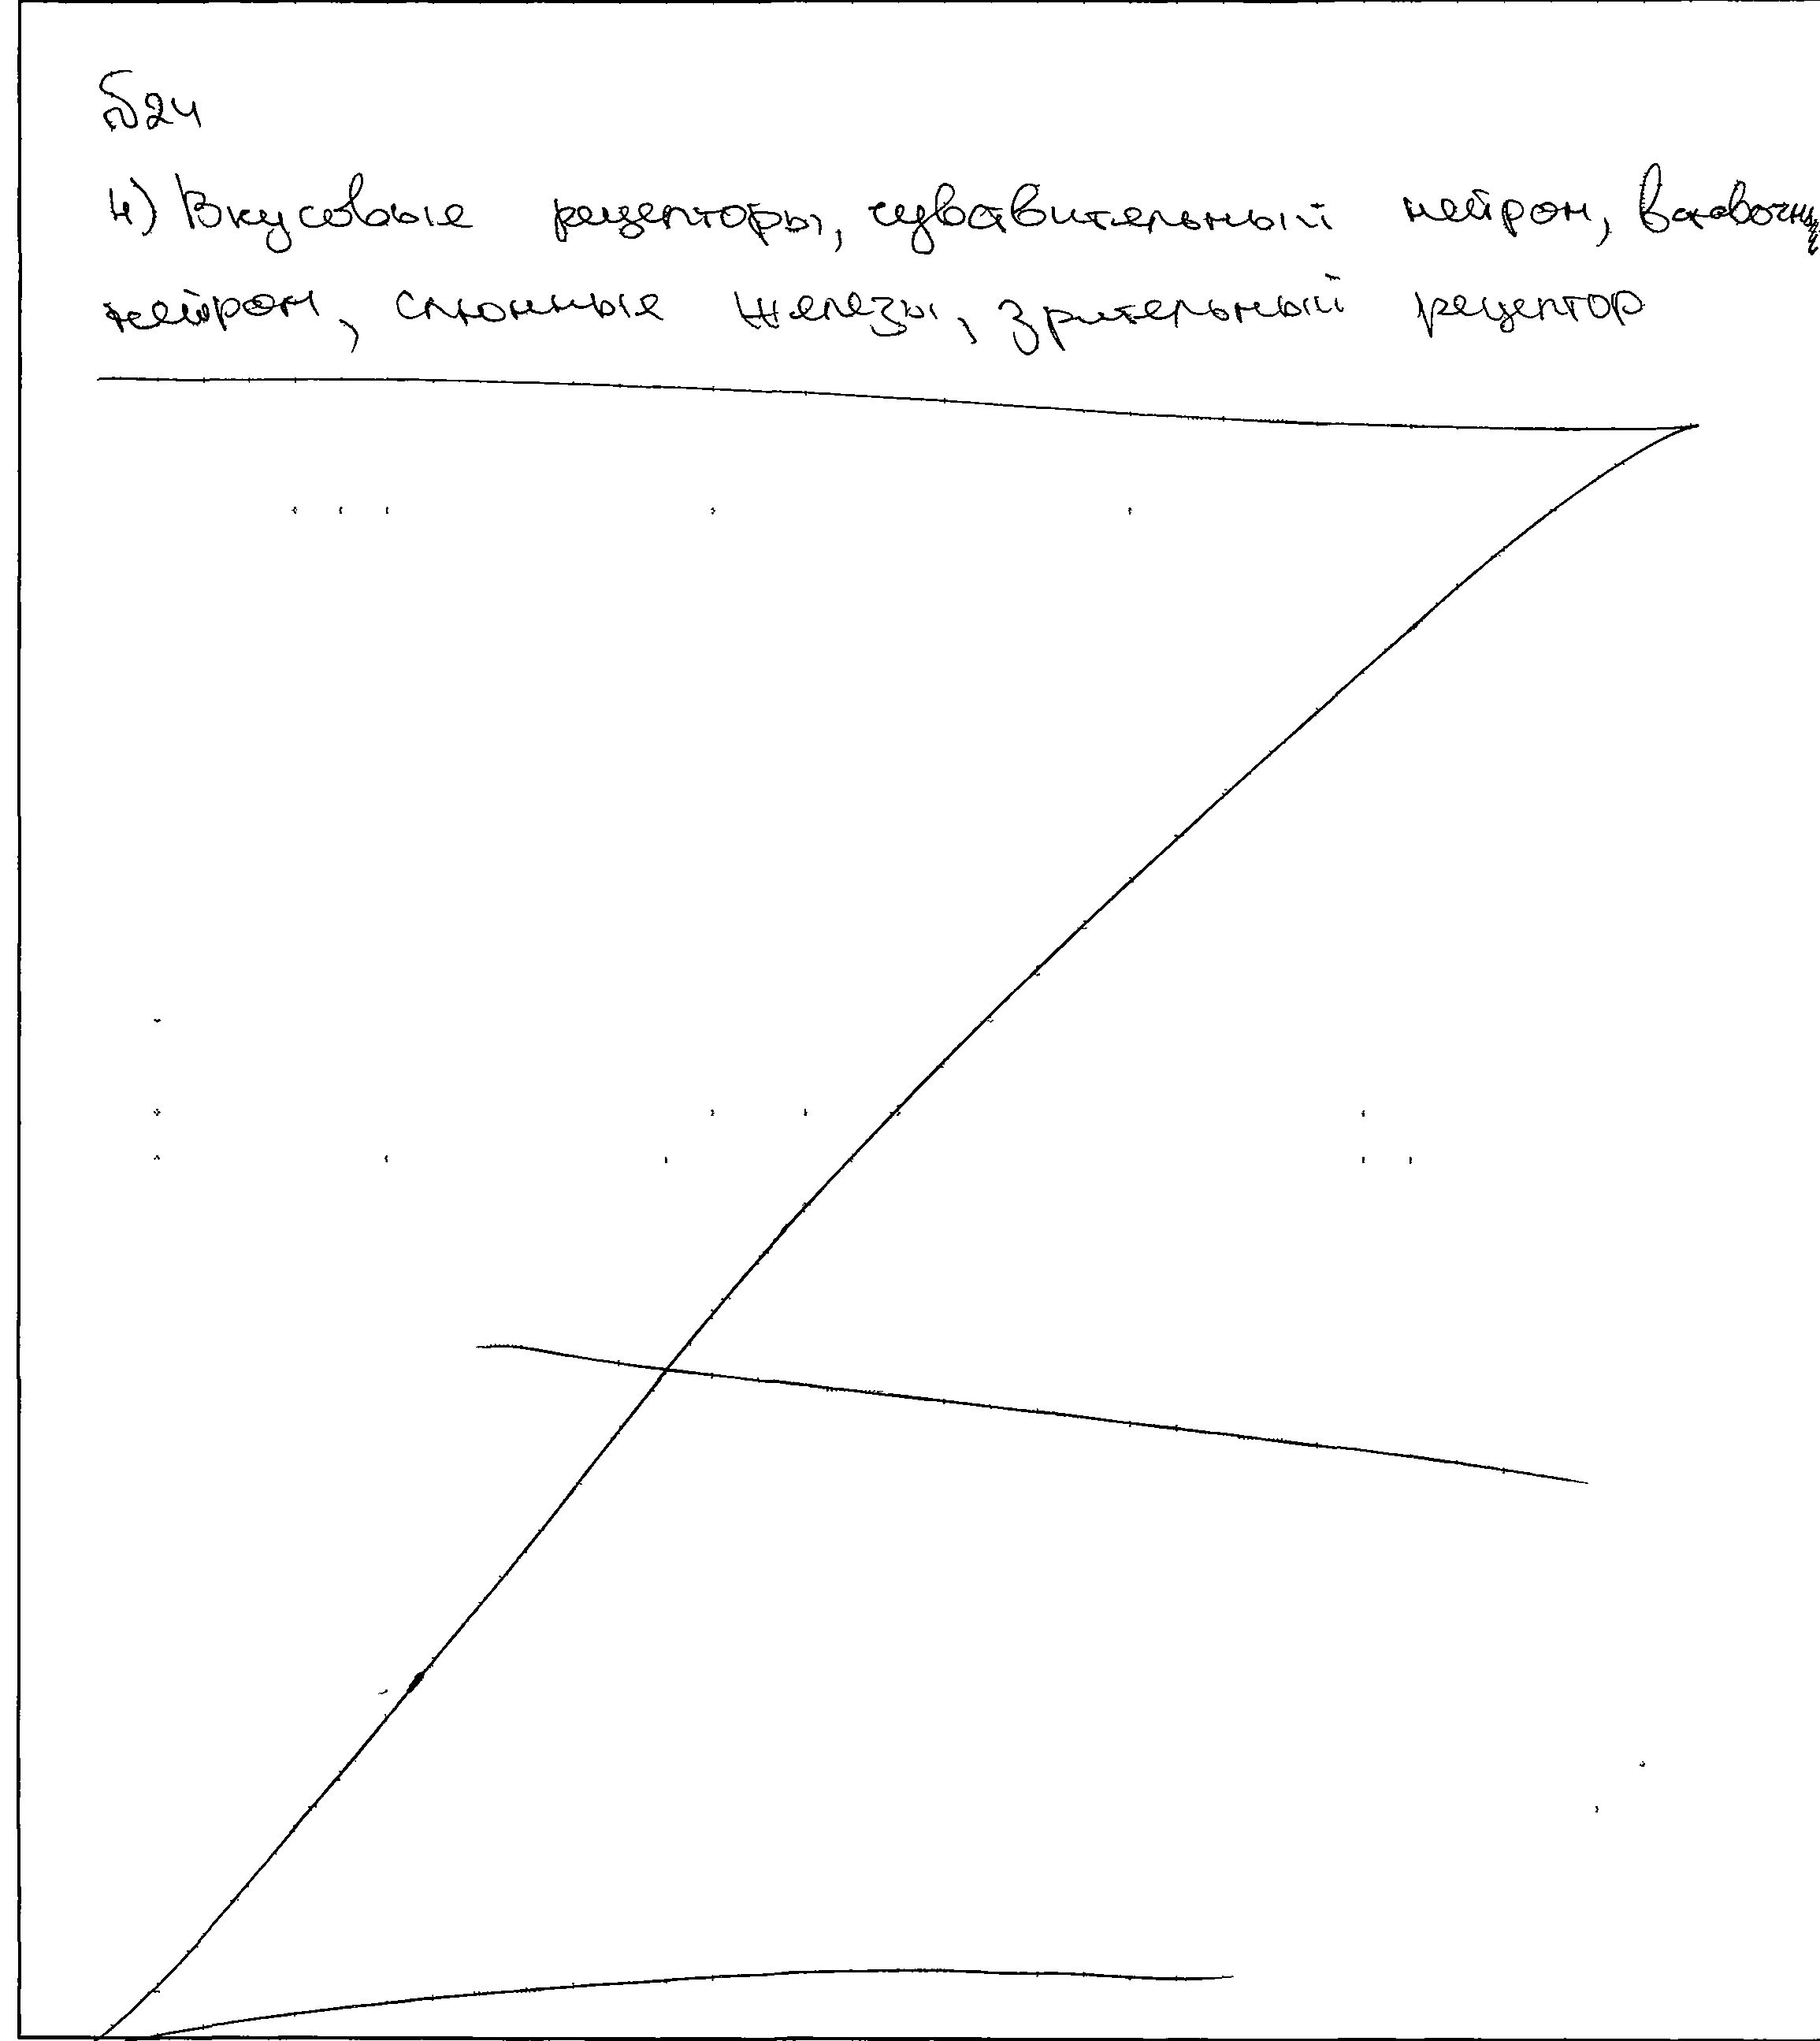 №24
4) Вкусовые рецепторы, чувствительный нейрон, вставочн
нейрон, слюнные железы, зрительный рецептор